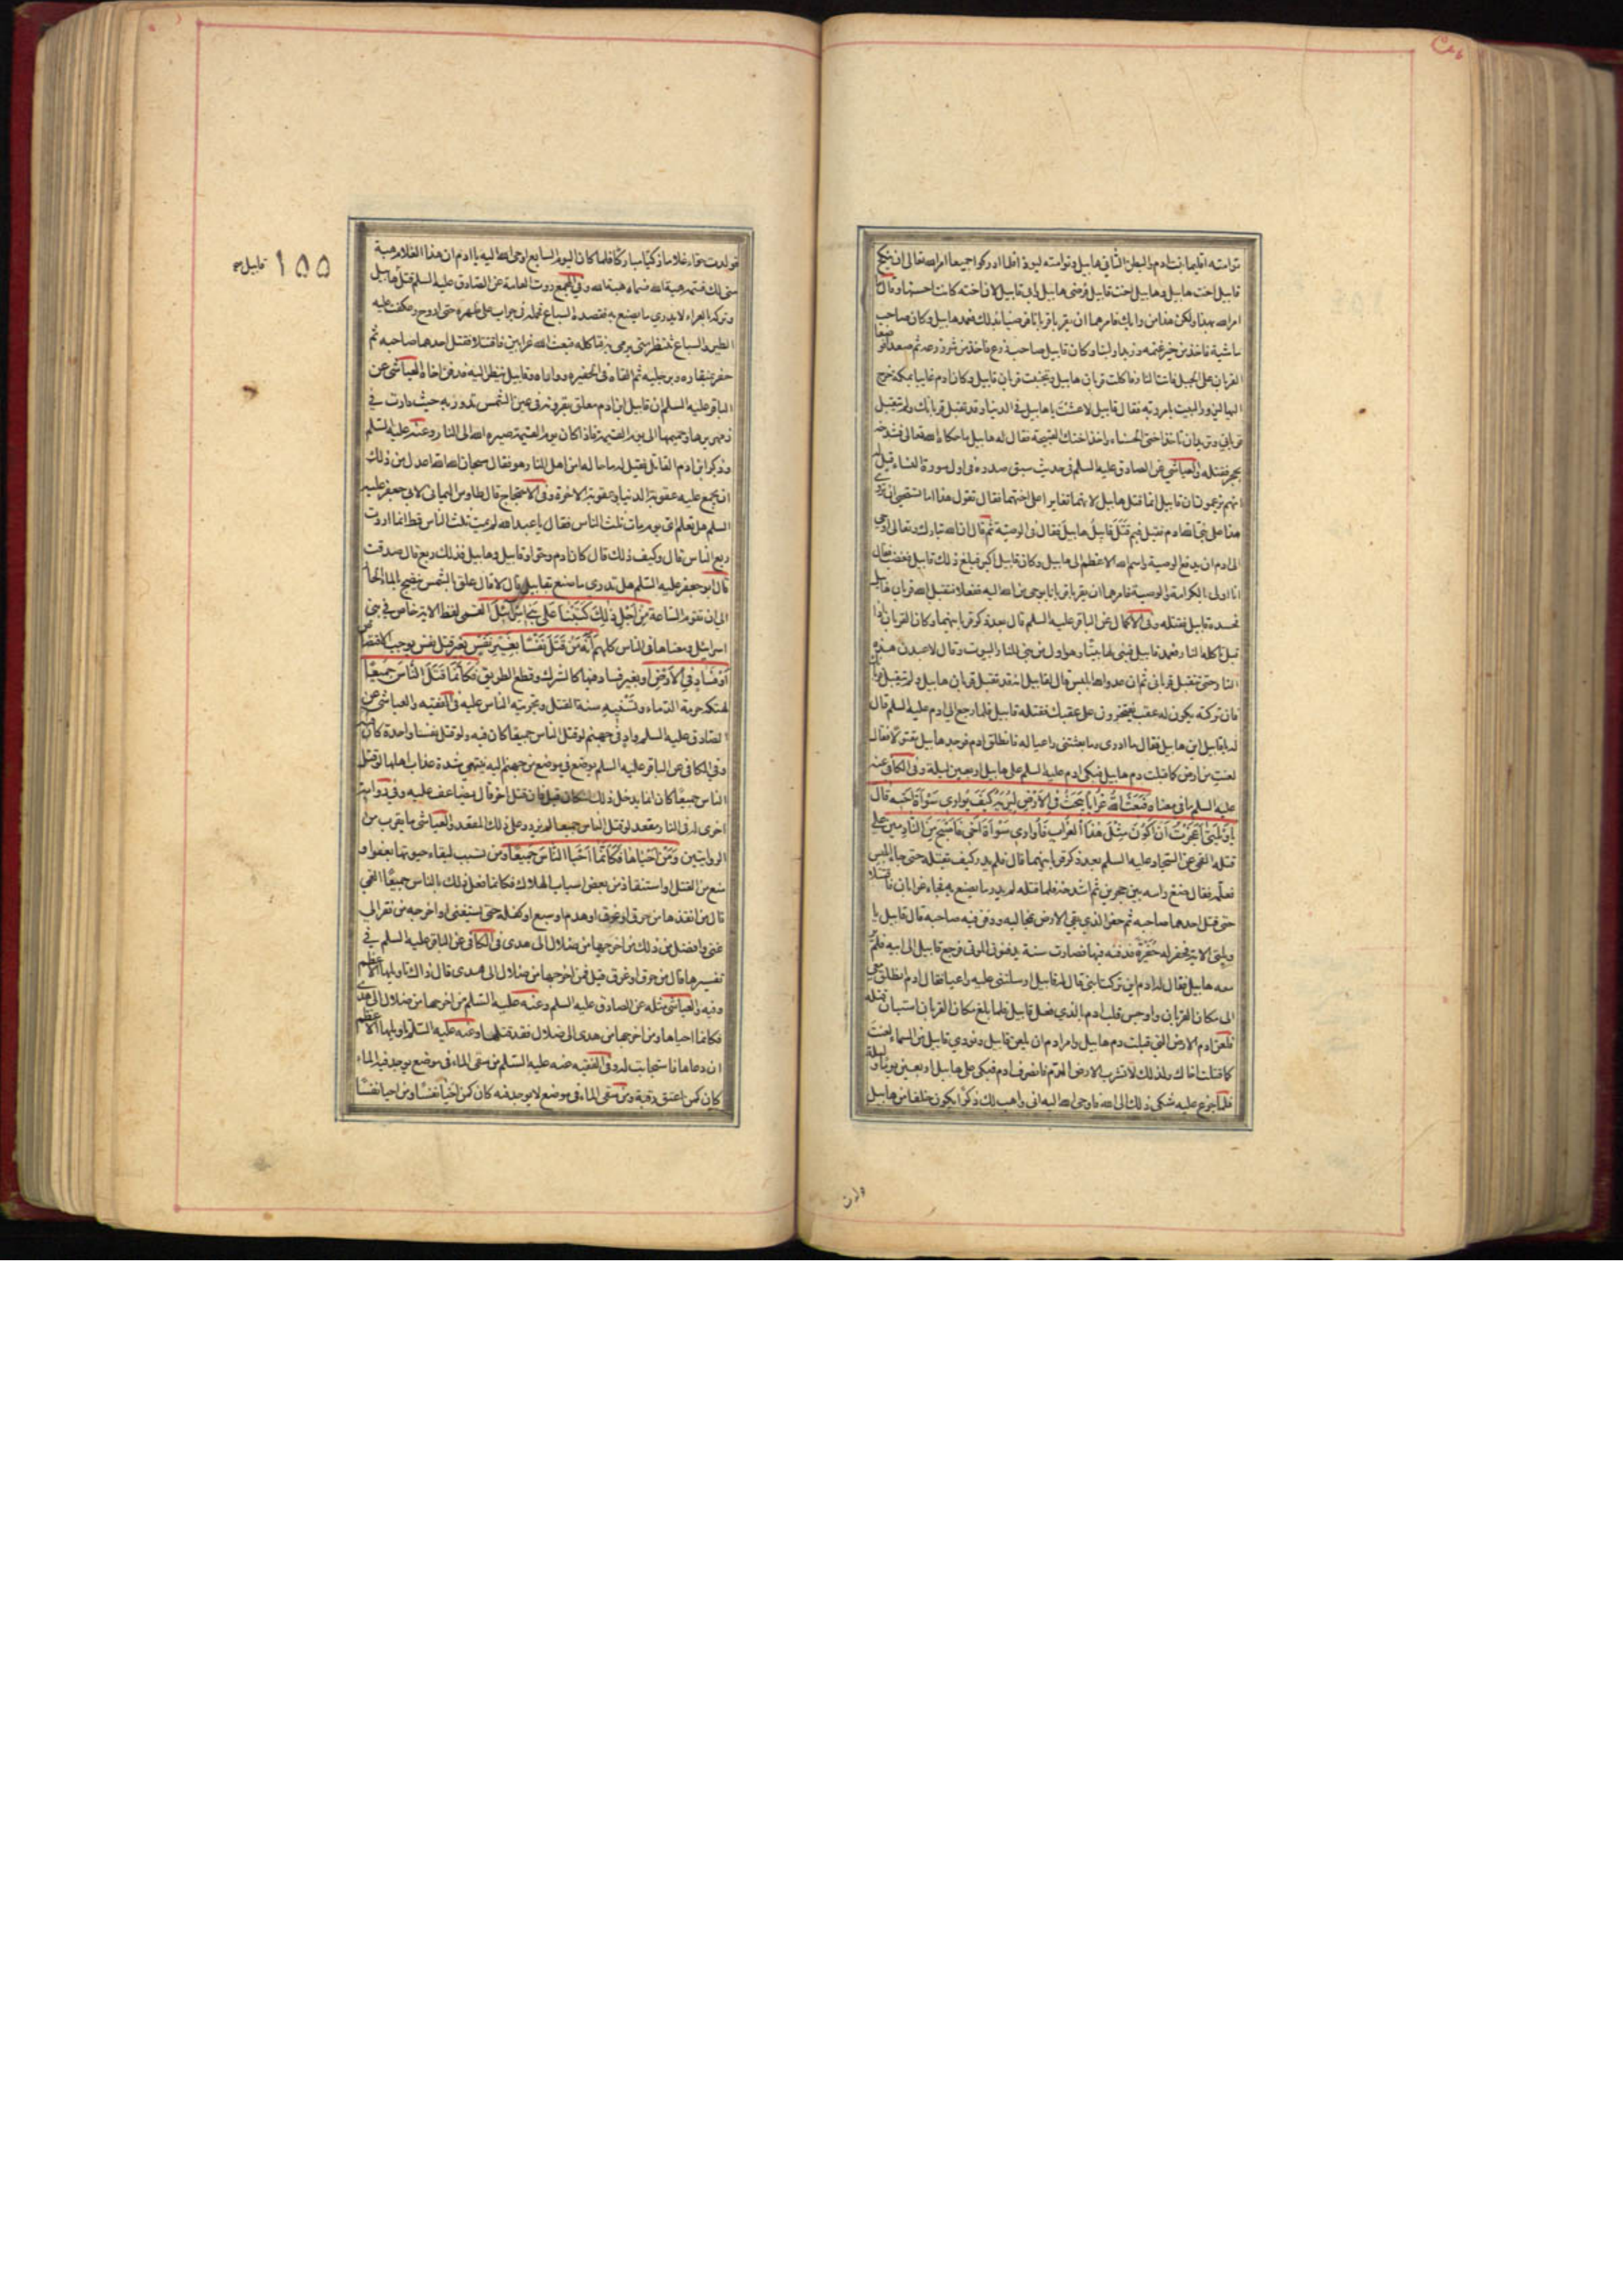 توامته اقليما بنت ادم والبطن الثاني هابيل وتوامته ليوذا فلما ادركوا جميعا امر الله تعالى ان ينكح
قابيل اخت هابيل وهابيل اخت قابيل فرضى هابيل وابى قابيل لان اخته كانت احسنهما وقال ما
امر الله بهذا ولكن هذا من رايك فامرهما ان يقربا قربانا فرضيا بذلك فعمد هابيل وكان صاحب
ماشية فاخذ من خير غنمه وزبدا ولبنا وكان قابيل صاحب زرع فاخذ من شر زرعه ثم صعدا فوضعا
القربان على الجبل فاتت النار فاكلت قربان هابيل وتجنبت قربان قابيل وكان ادم غايبا بمكة خرج
اليها ليزور البيت بامر ربه فقال قابيل لا عشت يا هابيل في الدنيا وقد تقبل قربانك ولم يتقبل
قرباني وتريد ان تاخذ اختي الحسناء واخذ اختك القبيحة فقال له هابيل ما حكاه الله تعالى فشدخه
بحجر فقتله والعياشي عن الصادق عليه السلم في حديث سبق صدره في اول سورة النساء قيل له
انهم يزعمون ان قابيل انما قتل هابيل لانهما تغايرا على اختهما فقال تقول هذا اما تستحيي ان تروي
هذا على نبي الله ادم فقيل فبم قتل قابيل هابيل فقال في الوصية ثم قال ان الله تبارك وتعالى اوحى
الى ادم ان يدفع الوصية واسم الله الاعظم الى هابيل وكان قابيل اكبر فبلغ ذلك قابيل فغضب فقال
انا اولى بالكرامة والوصية فامرهما ان يقربا قربانا بوحي من الله اليه ففعلا فتقبل الله قربان هابيل
فحسده قابيل فقتله وفي الاكمال عن الباقر عليه السلم قال بعد ذكر قربانهما وكان القربان اذا
قبل تاكله النار فعمد قابيل فبنى لها بيتا وهو اول من بنى للنار البيوت وقال لاعبدن هذه
النار حتى يتقبل قرباني ثم ان عدو الله ابليس قال لقابيل انه قد تقبل قربان هابيل ولم يتقبل قربانك
فان تركته يكون له عقب يفتخرون على عقبك فقتله قابيل فلما رجع الى ادم عليه السلم قال
له يا قابيل اين هابيل فقال ما ادري وما بعثتني راعيا له فانطلق ادم فوجد هابيل مقتولا فقال
لعنت من ارض كما قبلت دم هابيل فبكى ادم عليه السلم على هابيل اربعين ليلة وفي الكافي عنه
عليه السلم ما في معناه فَبَعَثَ اللهُ غُرابًا يَبْحَثُ فِي الاَرْضِ لِيُرِيَهُ كَيْفَ يُوارِي سَوْأَةَ اَخيهِ قالَ
يا وَيْلَتى اَعَجَزْتُ اَنْ اَكُونَ مِثْلَ هٰذَا الْغُرابِ فَاُوارِيَ سَوْأَةَ اَخي فَاَصْبَحَ مِنَ النّادِمينَ على
قتله القمي عن السجاد عليه السلم بعد ذكر قربانهما قال فلم يدر كيف يقتله حتى جاء ابليس
فعلمه فقال ضع راسه بين حجرين ثم اشدخه فلما قتله لم يدر ما يصنع به فجاء غرابان فاقتتلا
حتى قتل احدهما صاحبه ثم حفر الذي بقي الارض بمخاليبه ودفن فيه صاحبه قال قابيل يا
ويلتى الاية فحفر له حفيرة فدفنه فيها فصارت سنة يدفنون الموتى فرجع قابيل الى ابيه فلم ير
معه هابيل فقال له ادم اين تركت ابني قال له قابيل ارسلتني عليه راعيا فقال ادم انطلق معي
الى مكان القربان واوجس قلب ادم بالذي فعل قابيل فلما بلغ مكان القربان استبان قتله
فلعن ادم الارض التي قبلت دم هابيل وامر ادم ان يلعن قابيل ونودي قابيل من السماء لعنت
كما قتلت اخاك ولذلك لا تشرب الارض الدم فانصرف ادم فبكى على هابيل اربعين يوما وليلة
فلما جزع عليه شكى ذلك الى الله فاوحى الله اليه اني واهب لك ذكرا يكون خلفا من هابيل
ولدت
فولدت حواء غلاما زكيا مباركا فلما كان اليوم السابع اوحى الله اليه يا ادم ان هذا الغلام هبة
مني لك فسمه هبة الله فسماه هبة الله وفي المجمع روت العامة عن الصادق عليه السلم قتل هابيل
وتركه بالعراء لا يدري ما يصنع به فقصده السباع فحمله في جراب على ظهره حتى اروح وعكفت عليه
الطير والسباع تنتظر متى يرمي به فتاكله فبعث الله غرابين فاقتتلا فقتل احدهما صاحبه ثم
حفر بمنقاره وبرجليه ثم القاه في الحفيرة وواراه وقابيل ينظر اليه فدفن اخاه العياشي عن
الباقر عليه السلم ان قابيل ابن ادم معلق بقرونه في عين الشمس تدور به حيث دارت في
زمهريرها وحميمها الى يوم القيمة فاذا كان يوم القيمة صيره الله الى النار وعنه عليه السلم
وذكر ابن ادم القاتل فقيل له ما حاله امن اهل النار هو فقال سبحان الله الله اعدل من ذلك
ان يجمع عليه عقوبة الدنيا وعقوبة الاخرة وفي الاحتجاج قال طاوس اليماني لابي جعفر عليه
السلم هل تعلم اي يوم مات ثلث الناس فقال يا عبد الله لم يمت ثلث الناس قط انما اردت
ربع الناس قال وكيف ذلك قال كان ادم وحوا وقابيل وهابيل فذلك ربع قال صدقت
قال ابو جعفر عليه السلم هل تدري ما صنع بقابيل قال لا قال علق بالشمس ينضح بالماء الحار
الى ان تقوم الساعة مِنْ اَجْلِ ذٰلِكَ كَتَبْنا عَلى بَني اِسْرائيلَ القمي لفظ الاية خاص في بني
اسرائيل ومعناها في الناس كلهم اَنَّهُ مَنْ قَتَلَ نَفْسًا بِغَيْرِ نَفْسٍ بغير قتل نفس يوجب الاقتصاص
اَوْ فَسادٍ فِي الاَرْضِ او بغير فساد فيها كالشرك وقطع الطريق فَكَاَنَّما قَتَلَ النّاسَ جَميعًا
لهتكه حرمة الدماء وتسنينه سنة القتل وتجرئة الناس عليه في الفقيه والعياشي عن
الصادق عليه السلم واد في جهنم لو قتل الناس جميعا كان فيه ولو قتل نفسا واحدة كان فيه
وفي الكافي عن الباقر عليه السلم يوضع في موضع من جهنم اليه ينتهي شدة عذاب اهلها لو قتل
الناس جميعا كان انما يدخل ذلك المكان قيل فان قتل اخر قال يضاعف عليه وفي رواية
اخرى له في النار مقعد لو قتل الناس جميعا لم يزد على ذلك المقعد والعياشي ما يقرب من
الروايتين وَمَنْ اَحْياها فَكَاَنَّما اَحْيَا النّاسَ جَميعًا ومن تسبب لبقاء حيوتها بعفو او
منع من القتل او استنقاذ من بعض اسباب الهلاك فكانما فعل ذلك بالناس جميعا القمي
قال من انقذها من حرق او غرق او هدم او سبع او كفله حتى استغنى او اخرجه من فقر الى
غنى وافضل من ذلك من اخرجها من ضلال الى هدى في الكافي عن الباقر عليه السلم في
تفسيرها قال من حرق او غرق قيل فمن اخرجها من ضلال الى هدى قال ذاك تاويلها الاعظم
وفيه والعياشي مثله عن الصادق عليه السلم وعنه عليه السلم من اخرجها من ضلال الى هدى
فكانما احياها ومن اخرجها من هدى الى ضلال فقد قتلها وعنه عليه السلم تاويلها الاعظم
ان دعاها فاستجابت له وفي الفقيه عنه عليه السلم من سقى الماء في موضع يوجد فيه الماء
كان كمن اعتق رقبة ومن سقى الماء في موضع لا يوجد فيه كان كمن احيا نفسا ومن احيا نفسا
١٥٥
قابيل